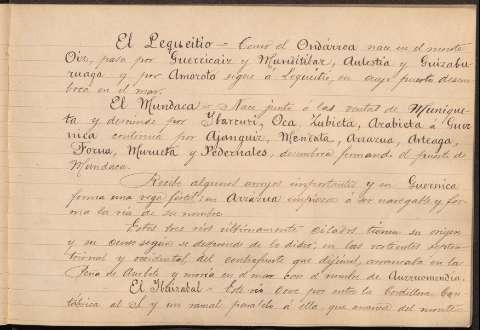 El Lequeitio - Como el Ondárroa nace en el monte
Oiz, pasa por Guerricaiz y Munditibar, Aulestia y Guizabu-
ruaga y por Amoroto sigue á Lequeitio, en cuyo puerto desem-
boca en el mar.
El Mundaca - Nace junto á las ventas de Munique-
ta y desciende por Ybarruri, Oca, Zubieta, Arabieta á Guer-
nica continua por Ajanguiz, Mendata, Arrazua, Arteaga,
Forua, Murueta y Pedernales, desemboca formando el puerto de
Mundaca.
Recibe algunos arroyos importantes y en Guernica
forma una vega fértil; en Arrazua empieza á ser navegable y for-
ma la ria de su nombre.
Estos tres rios últimamente citados tienen su origen
y su curso según se desprende de lo dicho, en las vertientes septen-
trional y occidental del contrafuerte que dijimos, arrancaba en la
Peña de Amboto y moria en el mar con el nombre de
El Ybaizabal - Este rio corre por entre la Cordillera Can-
tábrica al S. y un ramal paralelo á ella que arranca del monte